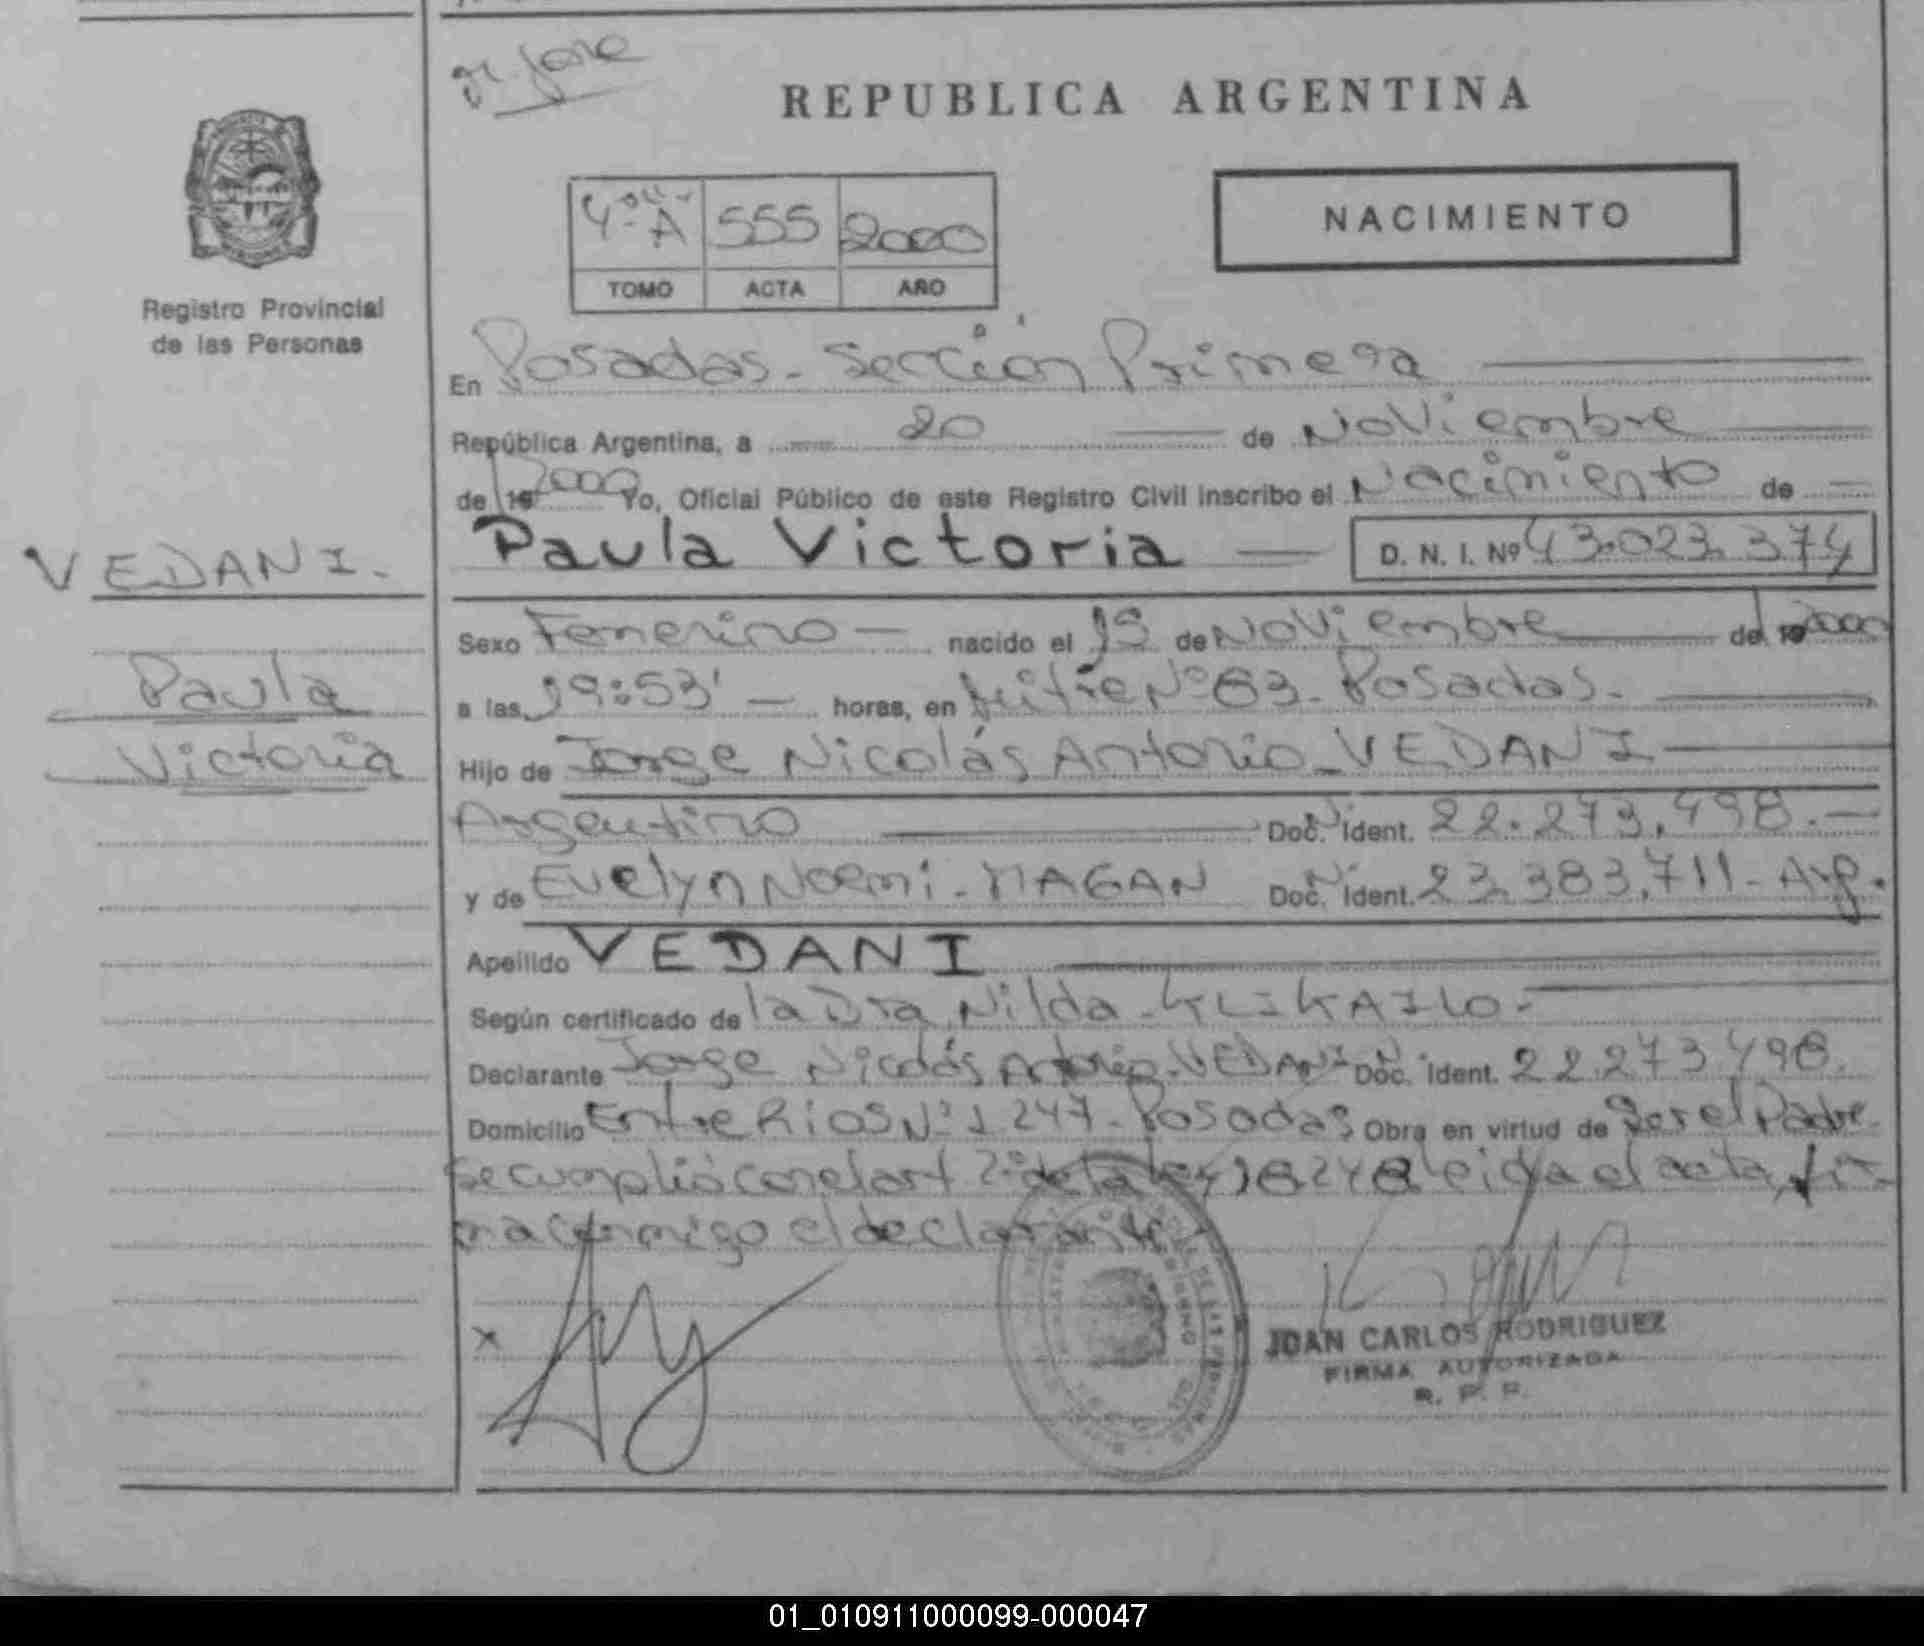 REPUBLICA ARGENTINA
4º A 555 2000
TOMO ACTA AÑO
NACIMIENTO
Registro Provincial
de las Personas
En Posadas - Sección Primera
República Argentina, a 20 de Noviembre
de 19 2000 Yo, Oficial Público de este Registro Civil inscribo el Nacimiento de
Paula Victoria D. N. I. Nº 43.023.374
VEDANI.
Paula
Victoria
Sexo Femenino nacido el de Noviembre de 19 2000
a las 19:53' horas, en Mitre Nº 63 - Posadas.
Hijo de Jorge Nicolás Antonio VEDANI
Argentino Doc. Ident. 22.273.498.
y de Evelyn Noemi - MAGAN Doc. Ident. 23.383.711 - Arg.
Apellido VEDANI
Según certificado de la Dra Nilda
Declarante Jorge Nicolás Antonio VEDANI Doc. Ident. 22.273.498.
Domicilio Entre Rios Nº 1247 - Posadas Obra en virtud de Ser el Padre
Se cumplió con el art 2º de la ley 18248 leida el acta, fir-
ma conmigo el declarante
x
JUAN CARLOS RODRIGUEZ
FIRMA AUTORIZADA
R. P. P.
01_010911000099-000047